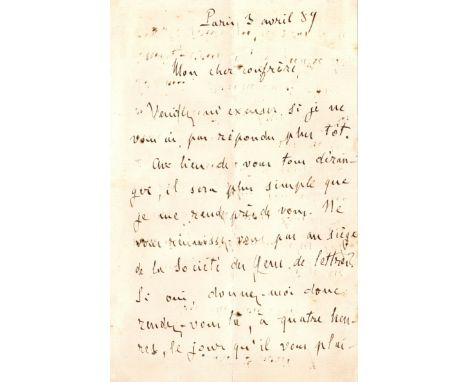 Paris 3 avril 89
Mon cher confrère,
Veuillez m'excuser si je ne
vous ai pas répondu plus tôt.
Au lieu de vous tous déran-
ger, il sera plus simple que
je me rende près de vous. Ne
vous réunissez-vous pas au siège
de la Société des Gens de lettres?
Si oui, donnez-moi donc
rendez-vous là, à quatre heu-
res, le jour qu'il vous plai-